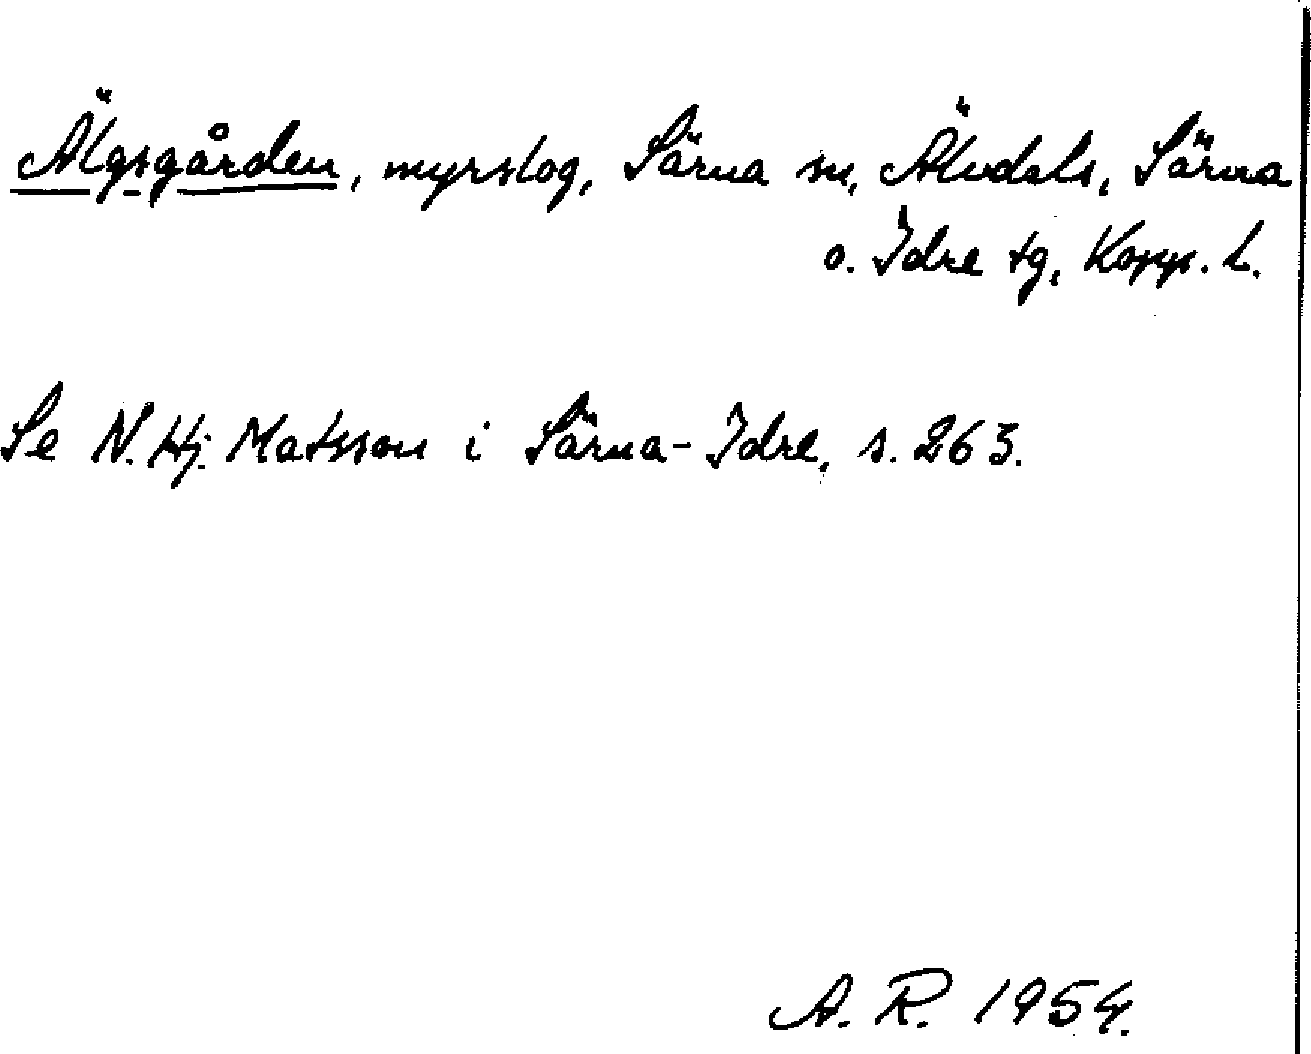 Älgsgården, myrslog, Särna sn, Älvdals, Särna
o. Idre tg, Kopp. l.
Se N. Hj. Matsson i Särna-Idre, s. 263.
A. R. 1954.